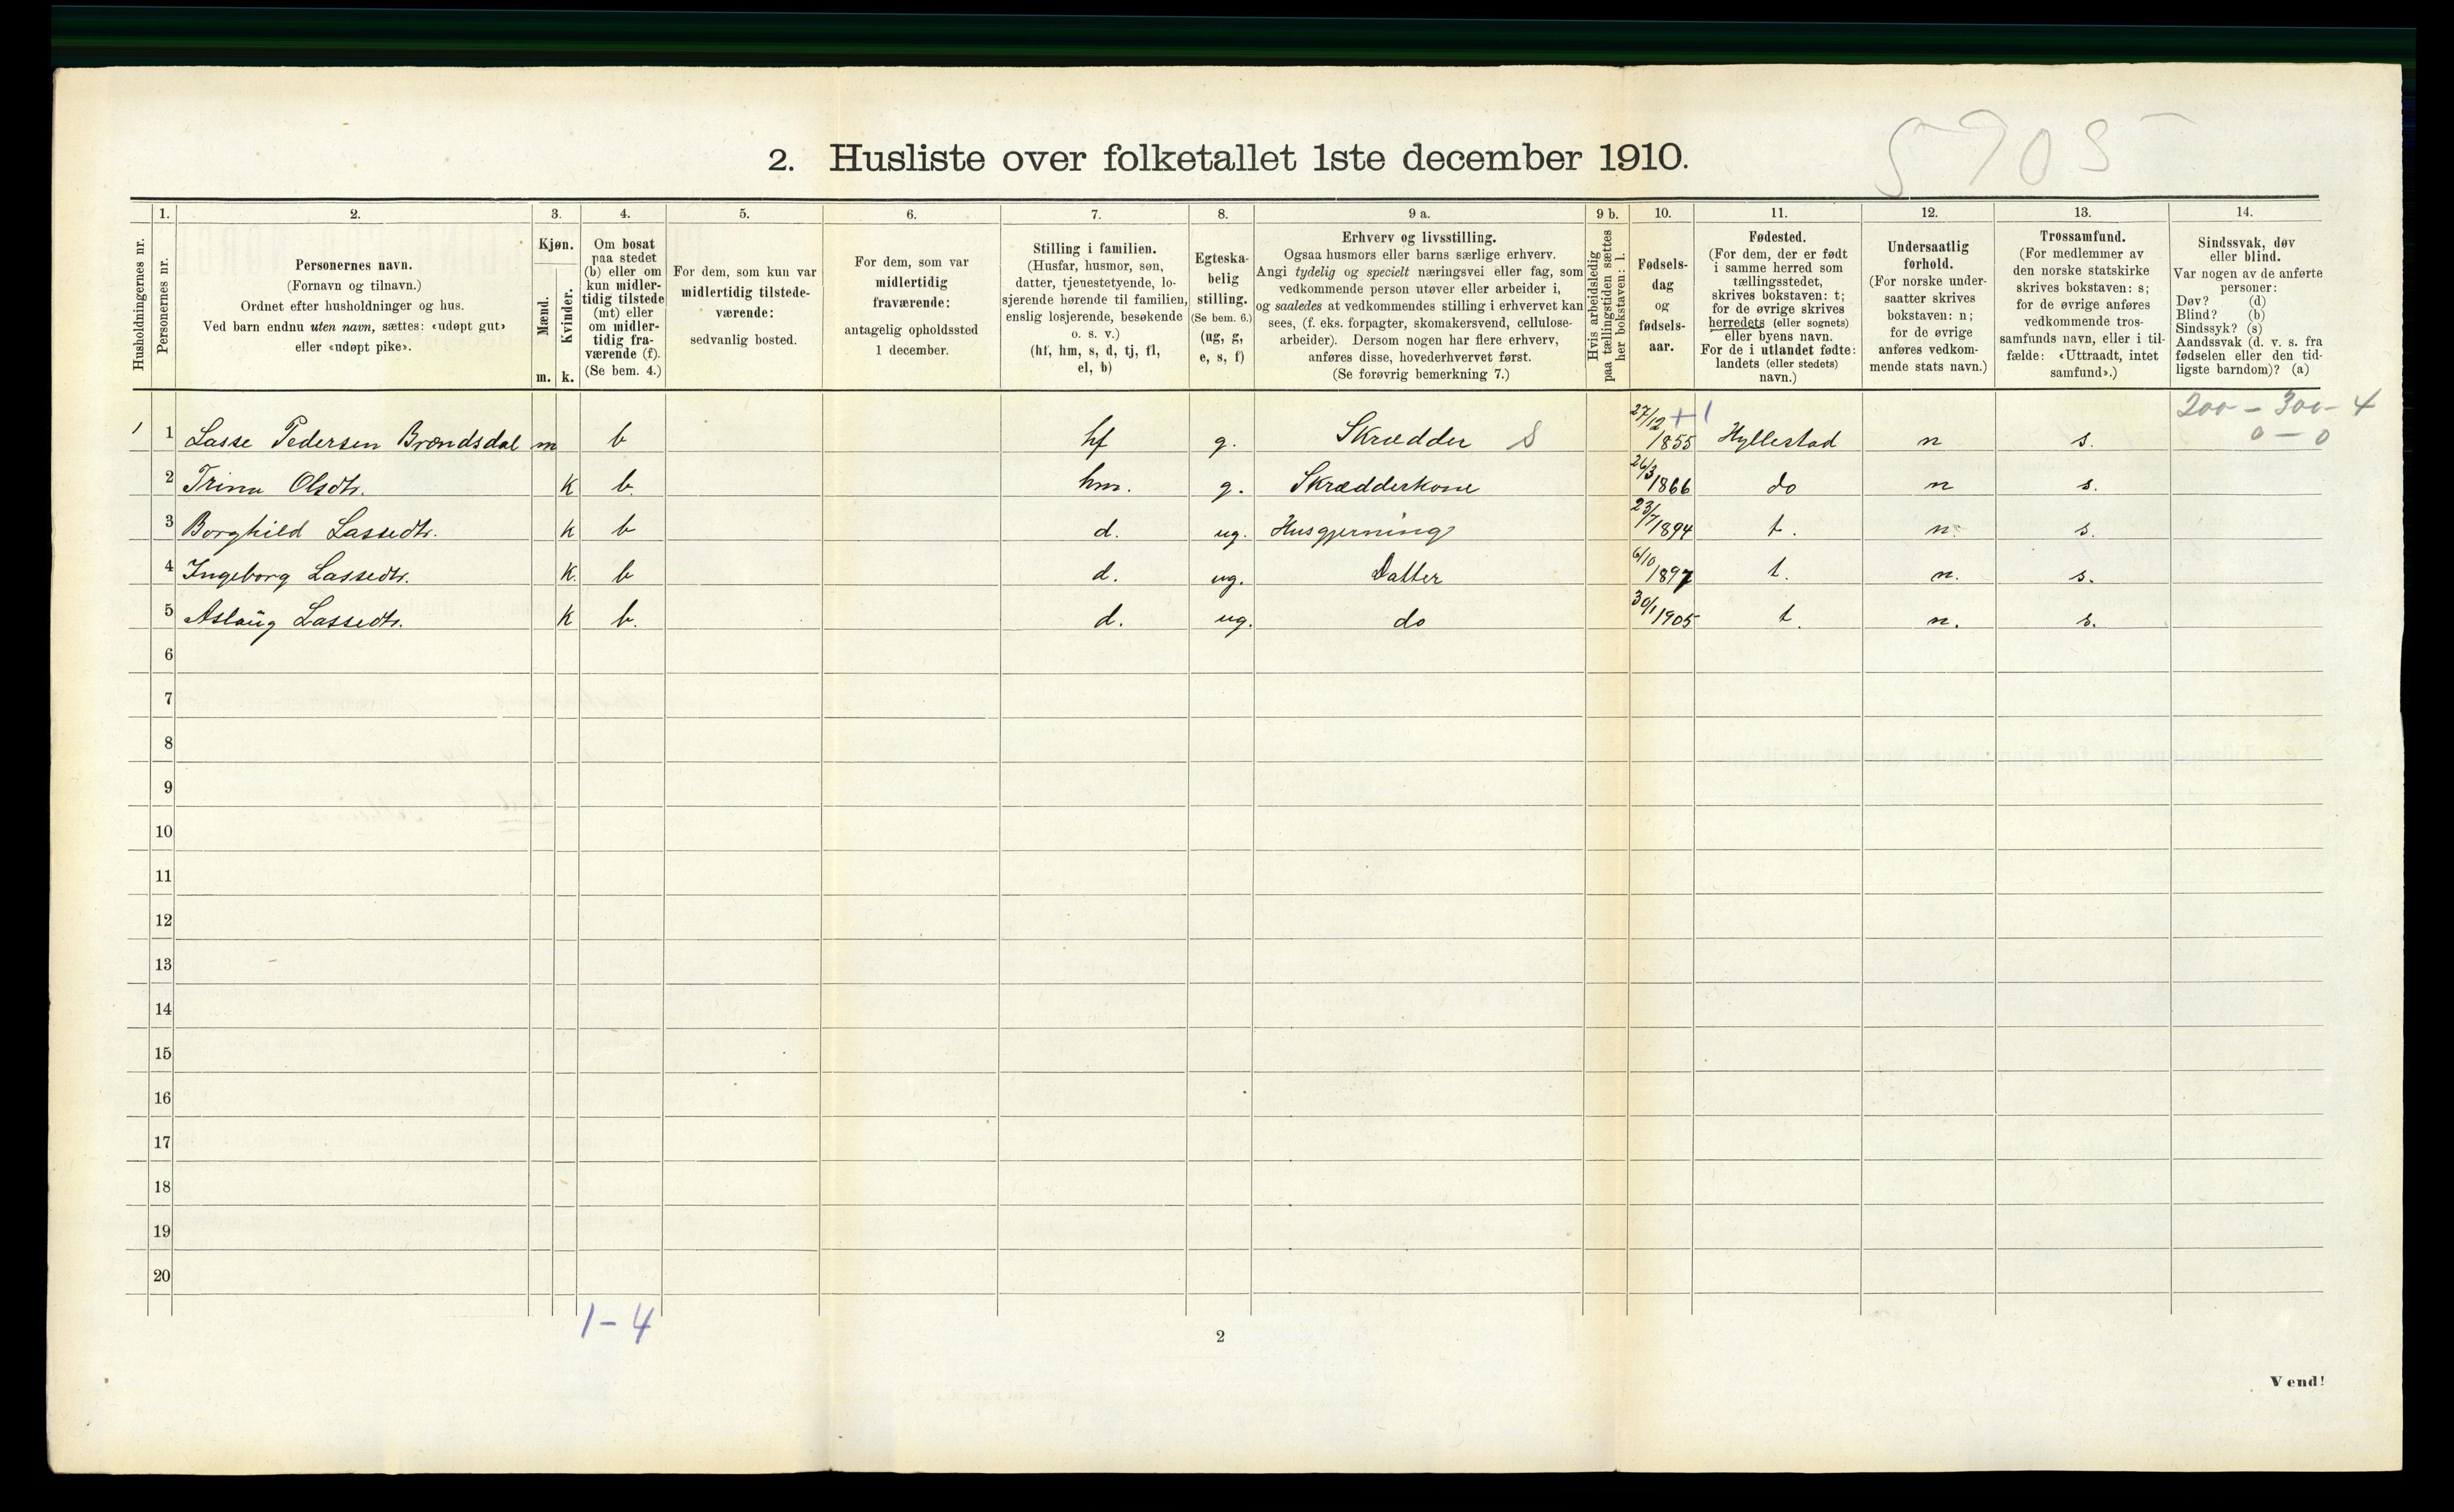 5705
2. Husliste over folketallet 1ste december 1910.
Husholdningernes nr.
1. Personernes nr.
2. Personernes navn.
(Fornavn og tilnavn.)
Ordnet efter husholdninger og hus.
Ved barn endnu uten navn, sættes: «udøpt gut»
eller «udøpt pike».
3. Kjøn.
Mænd. m.
Kvinder. k.
4. Om bosat
paa stedet
(b) eller om
kun midler-
tidig tilstede
(mt) eller
om midler-
tidig fra-
værende (f).
(Se bem. 4.)
5. For dem, som kun var
midlertidig tilstede-
værende:
sedvanlig bosted.
6. For dem, som var
midlertidig
fraværende:
antagelig opholdssted
1 december.
7. Stilling i familien.
(Husfar, husmor, søn,
datter, tjenestetyende, lo-
sjerende hørende til familien,
enslig losjerende, besøkende
o. s. v.)
(hf, hm, s, d, tj, fl,
el, b)
8. Egteska-
belig
stilling.
(Se bem. 6.)
(ug, g,
e, s, f)
9 a. Erhverv og livsstilling.
Ogsaa husmors eller barns særlige erhverv.
Angi tydelig og specielt næringsvei eller fag, som
vedkommende person utøver eller arbeider i,
og saaledes at vedkommendes stilling i erhvervet kan
sees, (f. eks. forpagter, skomakersvend, cellulose-
arbeider). Dersom nogen har flere erhverv,
anføres disse, hovederhvervet først.
(Se forøvrig bemerkning 7.)
9 b. Hvis arbeidsledig
paa tællingstiden sættes
her bokstaven: l.
10. Fødsels-
dag
og
fødsels-
aar.
11. Fødested.
(For dem, der er født
i samme herred som
tællingsstedet,
skrives bokstaven: t;
for de øvrige skrives
herredets (eller sognets)
eller byens navn.
For de i utlandet fødte:
landets (eller stedets)
navn.)
12. Undersaatlig
forhold.
(For norske under-
saatter skrives
bokstaven: n;
for de øvrige
anføres vedkom-
mende stats navn.)
13. Trossamfund.
(For medlemmer av
den norske statskirke
skrives bokstaven: s;
for de øvrige anføres
vedkommende tros-
samfunds navn, eller i til-
fælde: «Uttraadt, intet
samfund».)
14. Sindssvak, døv
eller blind.
Var nogen av de anførte
personer:
Døv? (d)
Blind? (b)
Sindssyk? (s)
Aandssvak (d. v. s. fra
fødselen eller den tid-
ligste barndom)? (a)
200 - 300 - 4
0 - 0
1 1 Lasse Pedersen Brændsdal m b hf g. Skrædder S 27/12 1855 +1 Hyllestad n s.
2 Trina Olsdtr. K b hm. g. Skrædderkone 26/3 1866 do n s.
3 Borghild Lassedtr. K b d. ug. Husgjerning 23/7 1894 t. n. s.
4 Ingeborg Lassedtr. K. b d. ug. Datter 6/10 1897 t. n. s.
5 Aslaüg Lassedtr. K b. d. ug. do 30/1 1905 t. n. s.
6
7
8
9
10
11
12
13
14
15
16
17
18
19
20
1-4
2
Vend!